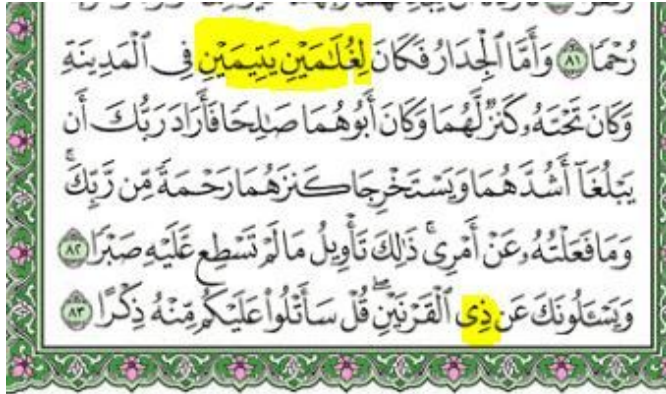 رُحْمًا ٨١ وَأَمَّا ٱلْجِدَارُ فَكَانَ لِغُلَٰمَيْنِ يَتِيمَيْنِ فِى ٱلْمَدِينَةِ
وَكَانَ تَحْتَهُۥ كَنزٌ لَّهُمَا وَكَانَ أَبُوهُمَا صَٰلِحًا فَأَرَادَ رَبُّكَ أَن
يَبْلُغَآ أَشُدَّهُمَا وَيَسْتَخْرِجَا كَنزَهُمَا رَحْمَةً مِّن رَّبِّكَ ۚ
وَمَا فَعَلْتُهُۥ عَنْ أَمْرِى ۚ ذَٰلِكَ تَأْوِيلُ مَا لَمْ تَسْطِع عَّلَيْهِ صَبْرًا ٨٢
وَيَسْـَٔلُونَكَ عَن ذِى ٱلْقَرْنَيْنِ ۖ قُلْ سَأَتْلُوا۟ عَلَيْكُم مِّنْهُ ذِكْرًا ٨٣